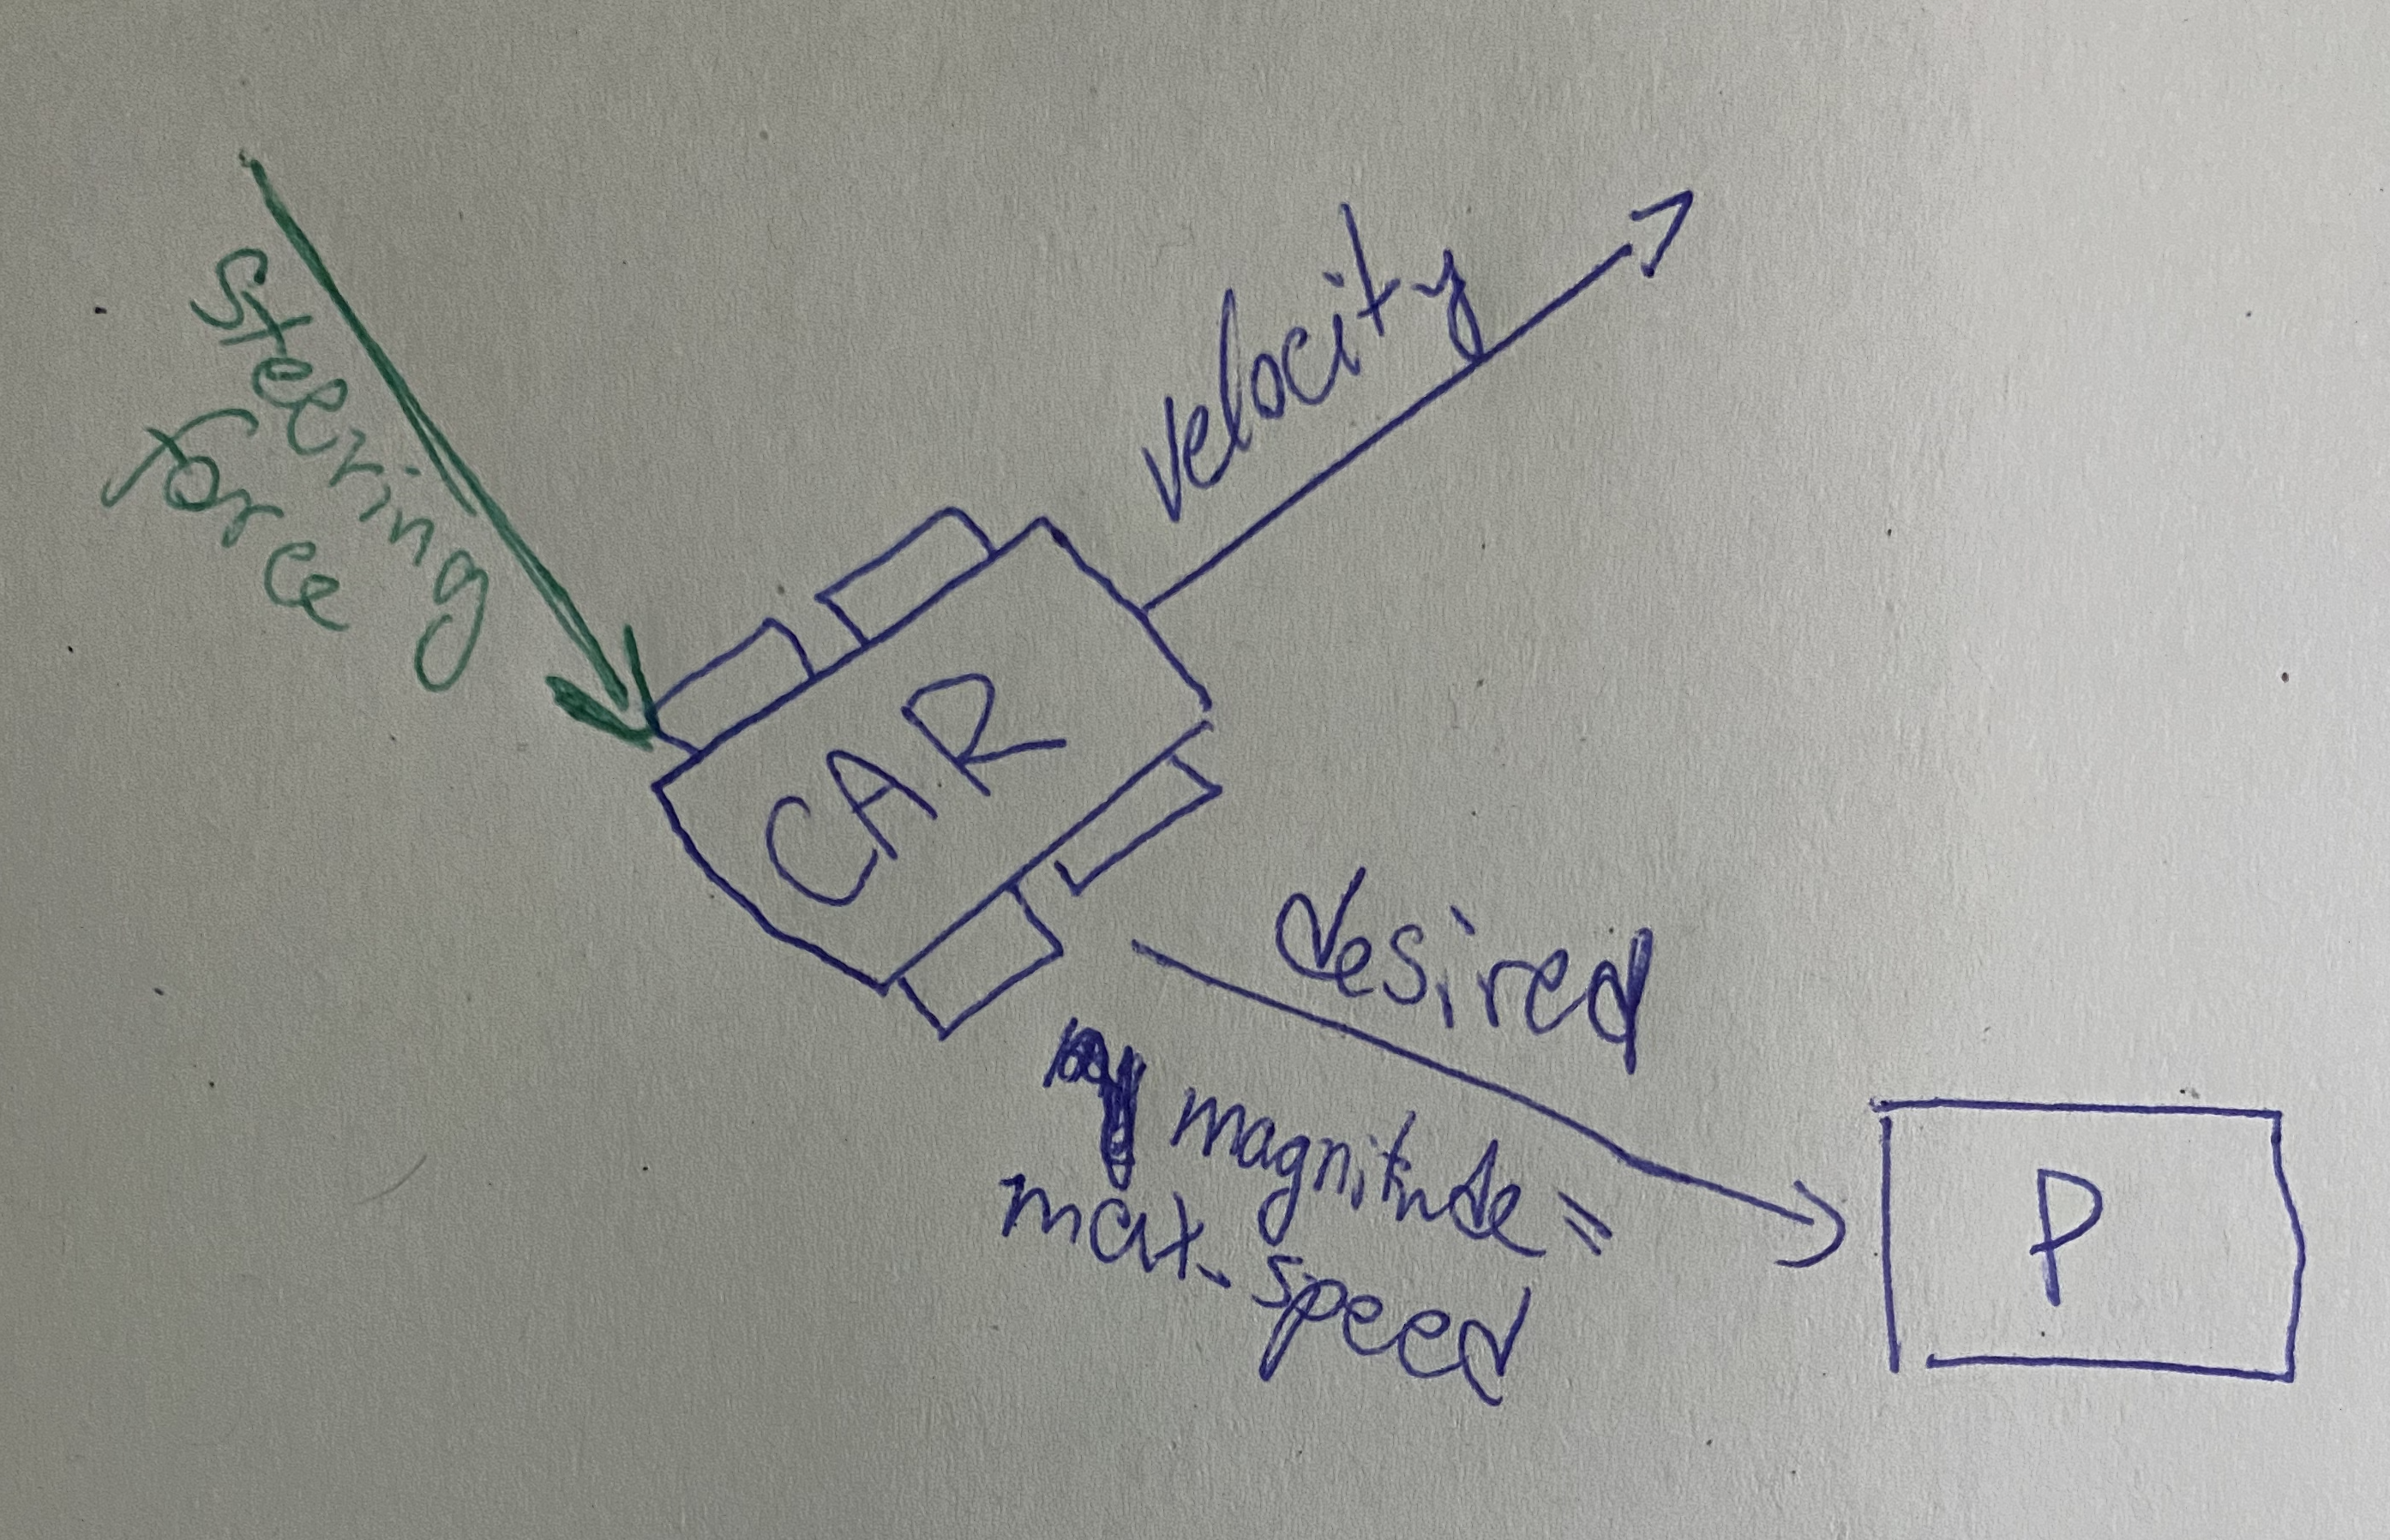 steering
force
velocity
CAR
desired
magnitude =
max. speed
P